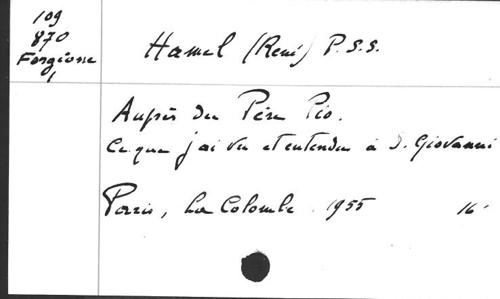 109
870
Forgione
1
Hamel (René) P.S.S.
Auprès du Père Pio.
Ce que j'ai vu et entendu à S. Giovanni
Paris, La Colombe. 1955 16°